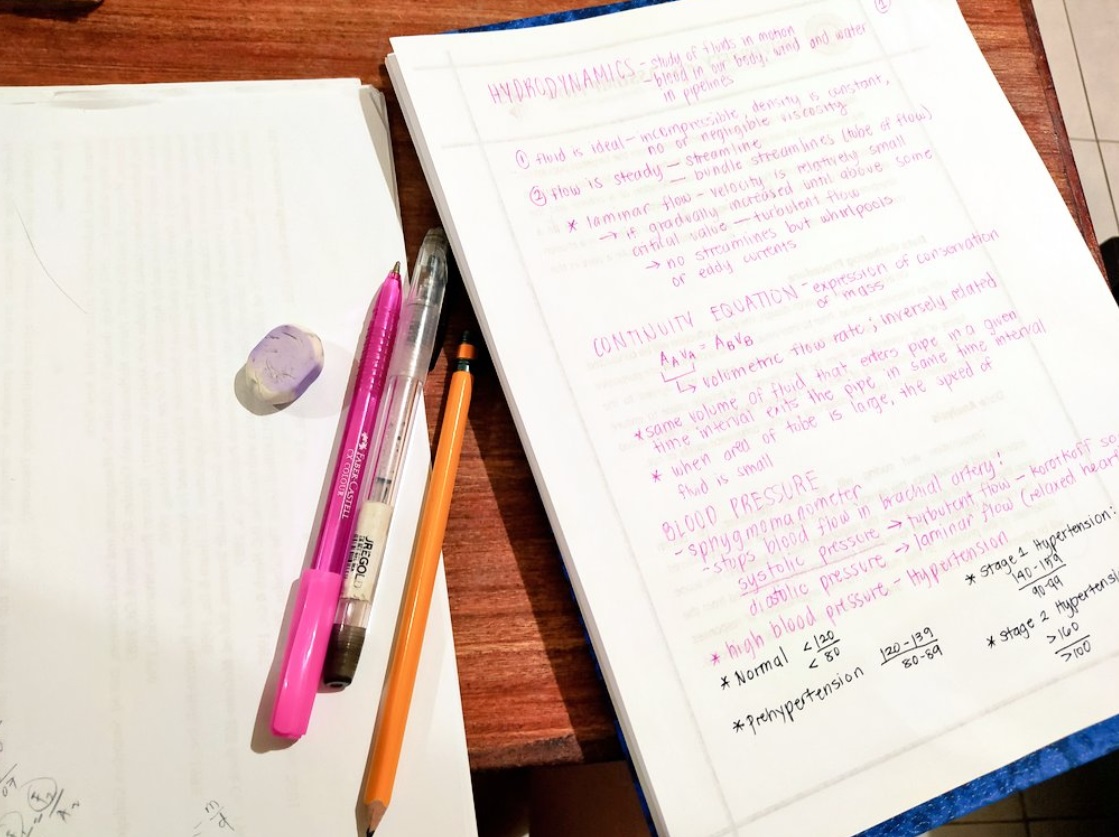 ①
HYDRODYNAMICS - study of fluids in motion
- blood in our body, wind and water
in pipelines
① fluid is ideal - incompressible, density is constant,
no or negligible viscosity
② flow is steady - streamline
- bundle streamlines (tube of flow)
* laminar flow - velocity is relatively small
→ if gradually increased until above some
critical value - turbulent flow
→ no streamlines but whirlpools
or eddy currents
CONTINUITY EQUATION - expression of conservation
of mass
AAVA = ABVB
↳ volumetric flow rate; inversely related
* same volume of fluid that enters pipe in a given
time interval exits the pipe in same time interval
* when area of tube is large, the speed of
fluid is small
BLOOD PRESSURE
- sphygmomanometer
- stops blood flow in brachial artery!
systolic pressure → turbulent flow - korotkoff so
diastolic pressure → laminar flow (relaxed heart
* high blood pressure - Hypertension
* Normal <120
<80
* Prehypertension 120-139
80-89
* Stage 1 Hypertension:
140-159
90-99
* Stage 2 Hypertension
>160
>100
FABER-CASTELL
CX COLOUR